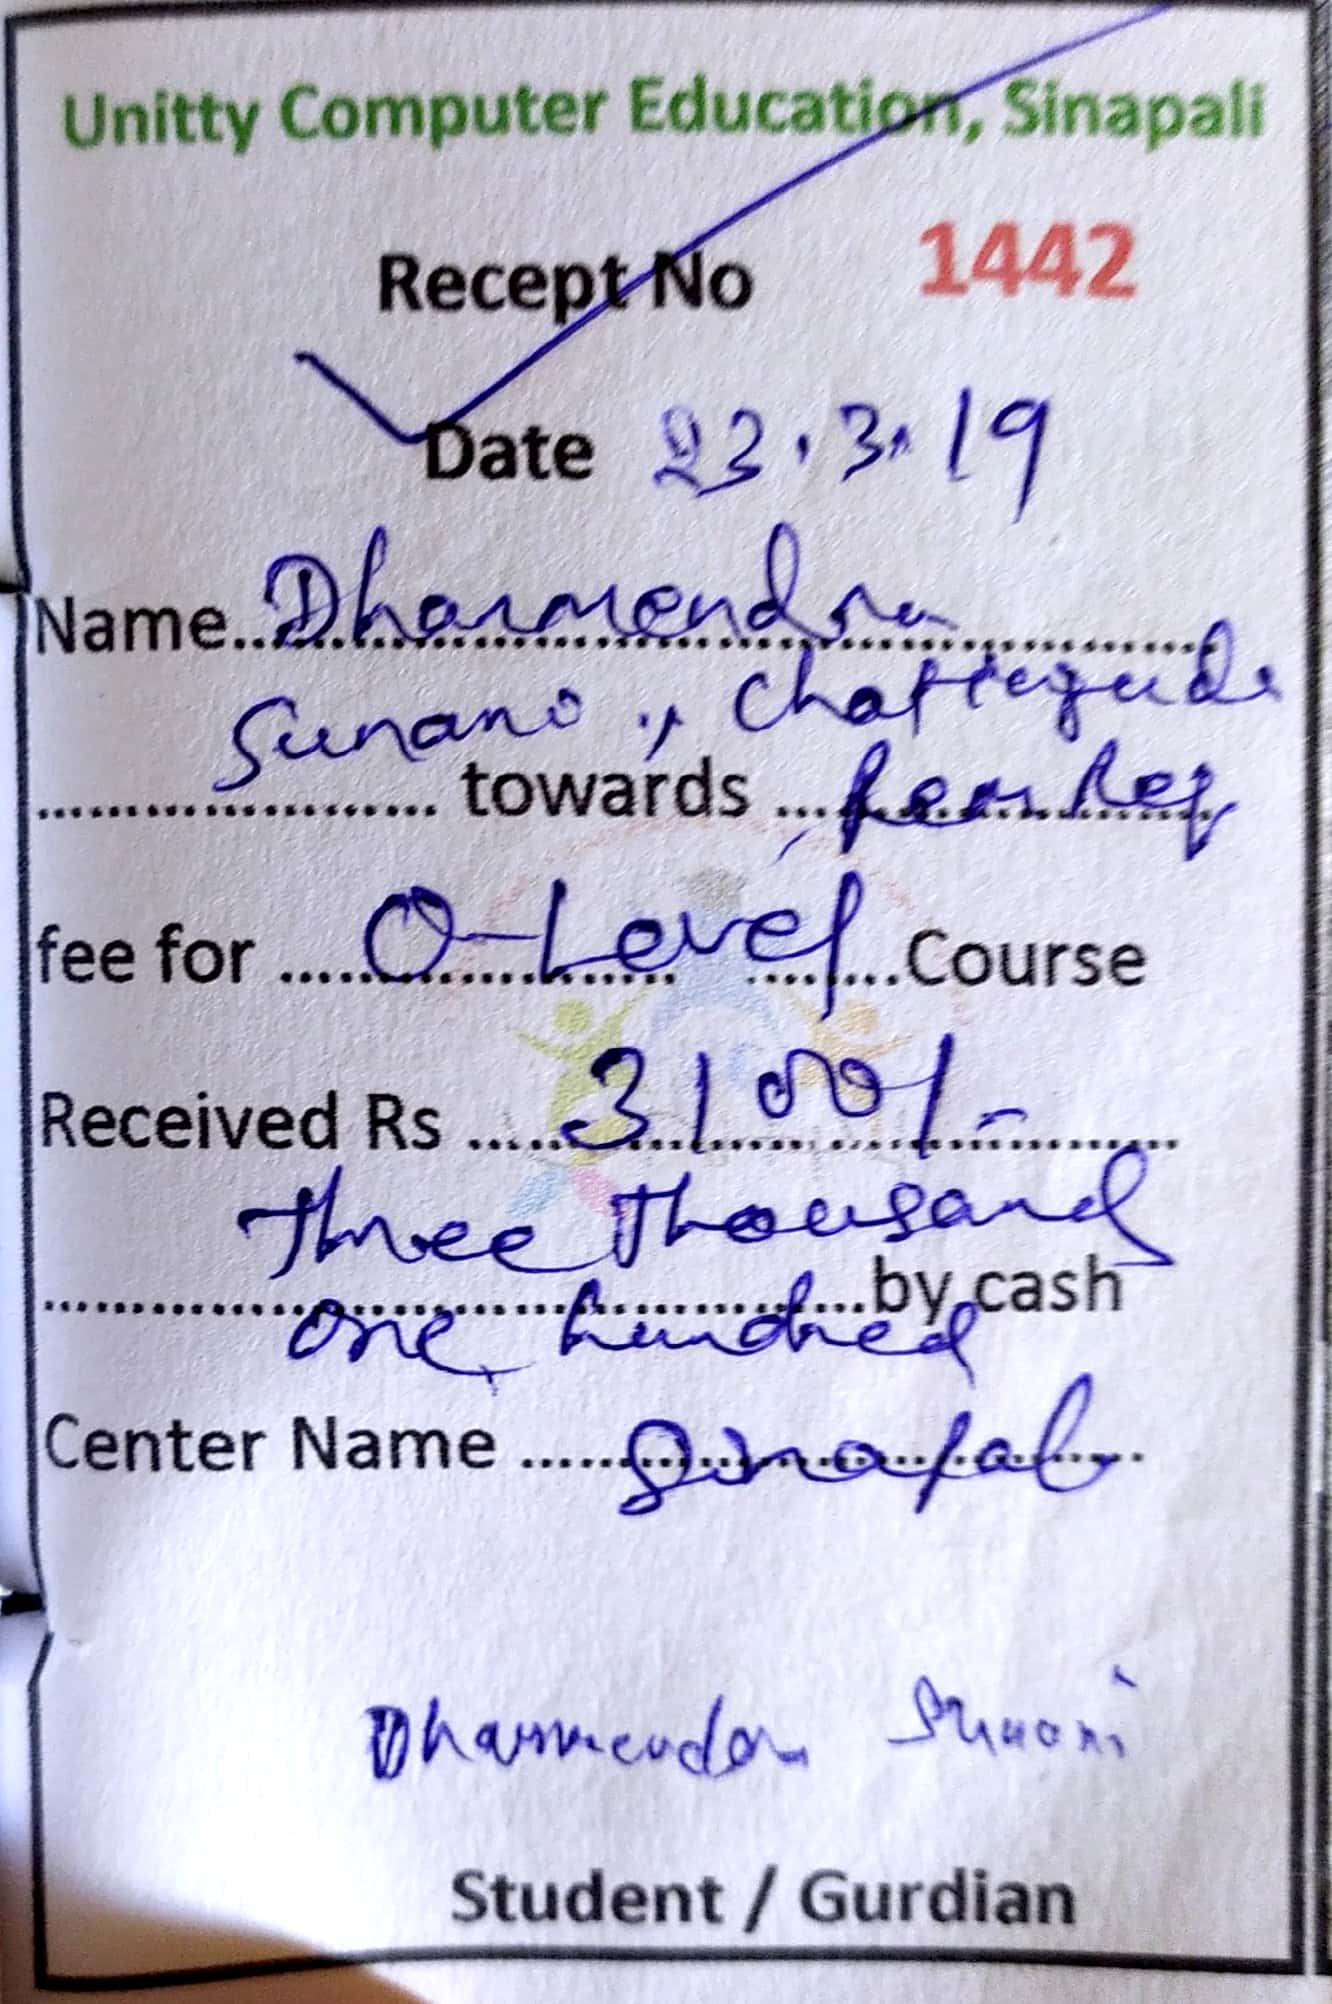 Unitty Computer Education, Sinapali
Recept No 1442
Date 23.3.19
Name..Dharmendra
Sunani, Chattiguda
towards
fee for O-Level Course
Received Rs 3100/-
Three Thousand
by cash
one hundred
Center Name Sinapali
Dharmendra Sunani
Student / Gurdian